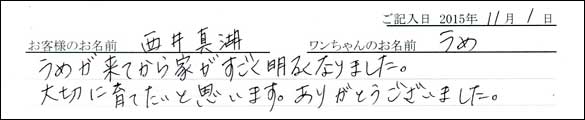 ご記入日 2015年 11月 1日
お客様のお名前 西井真湖 ワンちゃんのお名前 うめ
うめが来てから家がすごく明るくなりました。
大切に育てたいと思います。ありがとうございました。